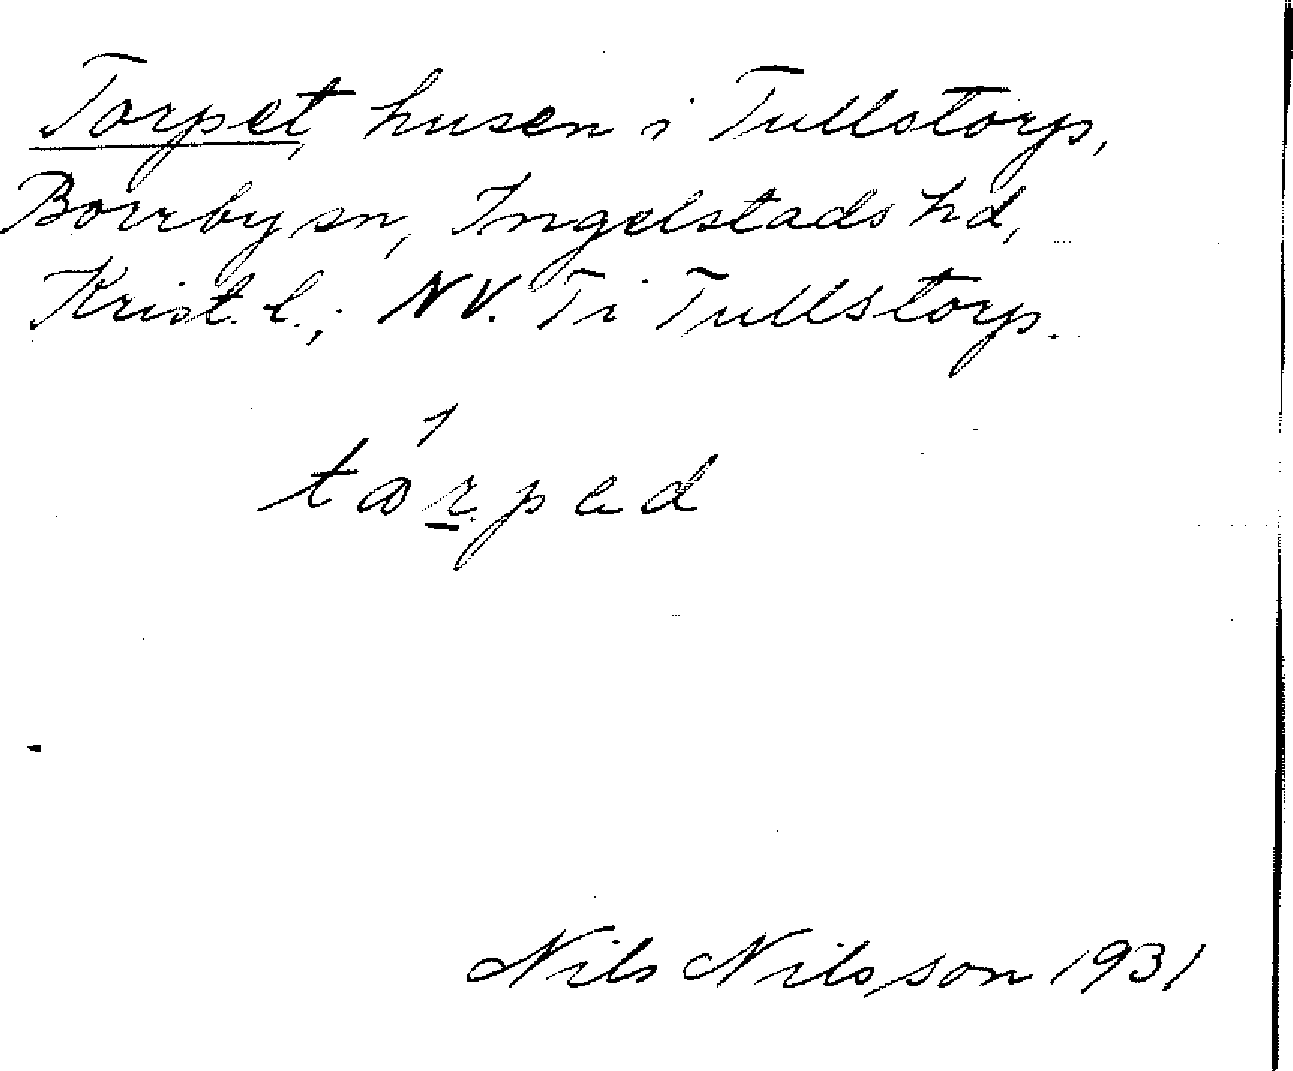 Torpet, husen i Tullstorp,
Borrby sn, Ingelstads hd,
Krist. l.; NV. Ti Tullstorp.
Nils Nilsson 1931